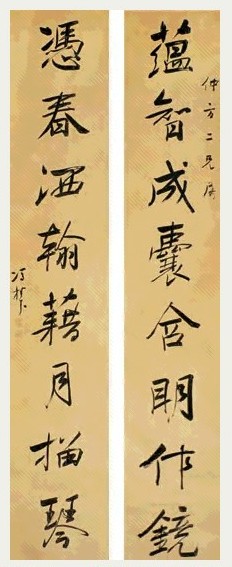 仲方二兄屬
蘊智成囊含明作鏡
憑春洒翰藉月抽琴